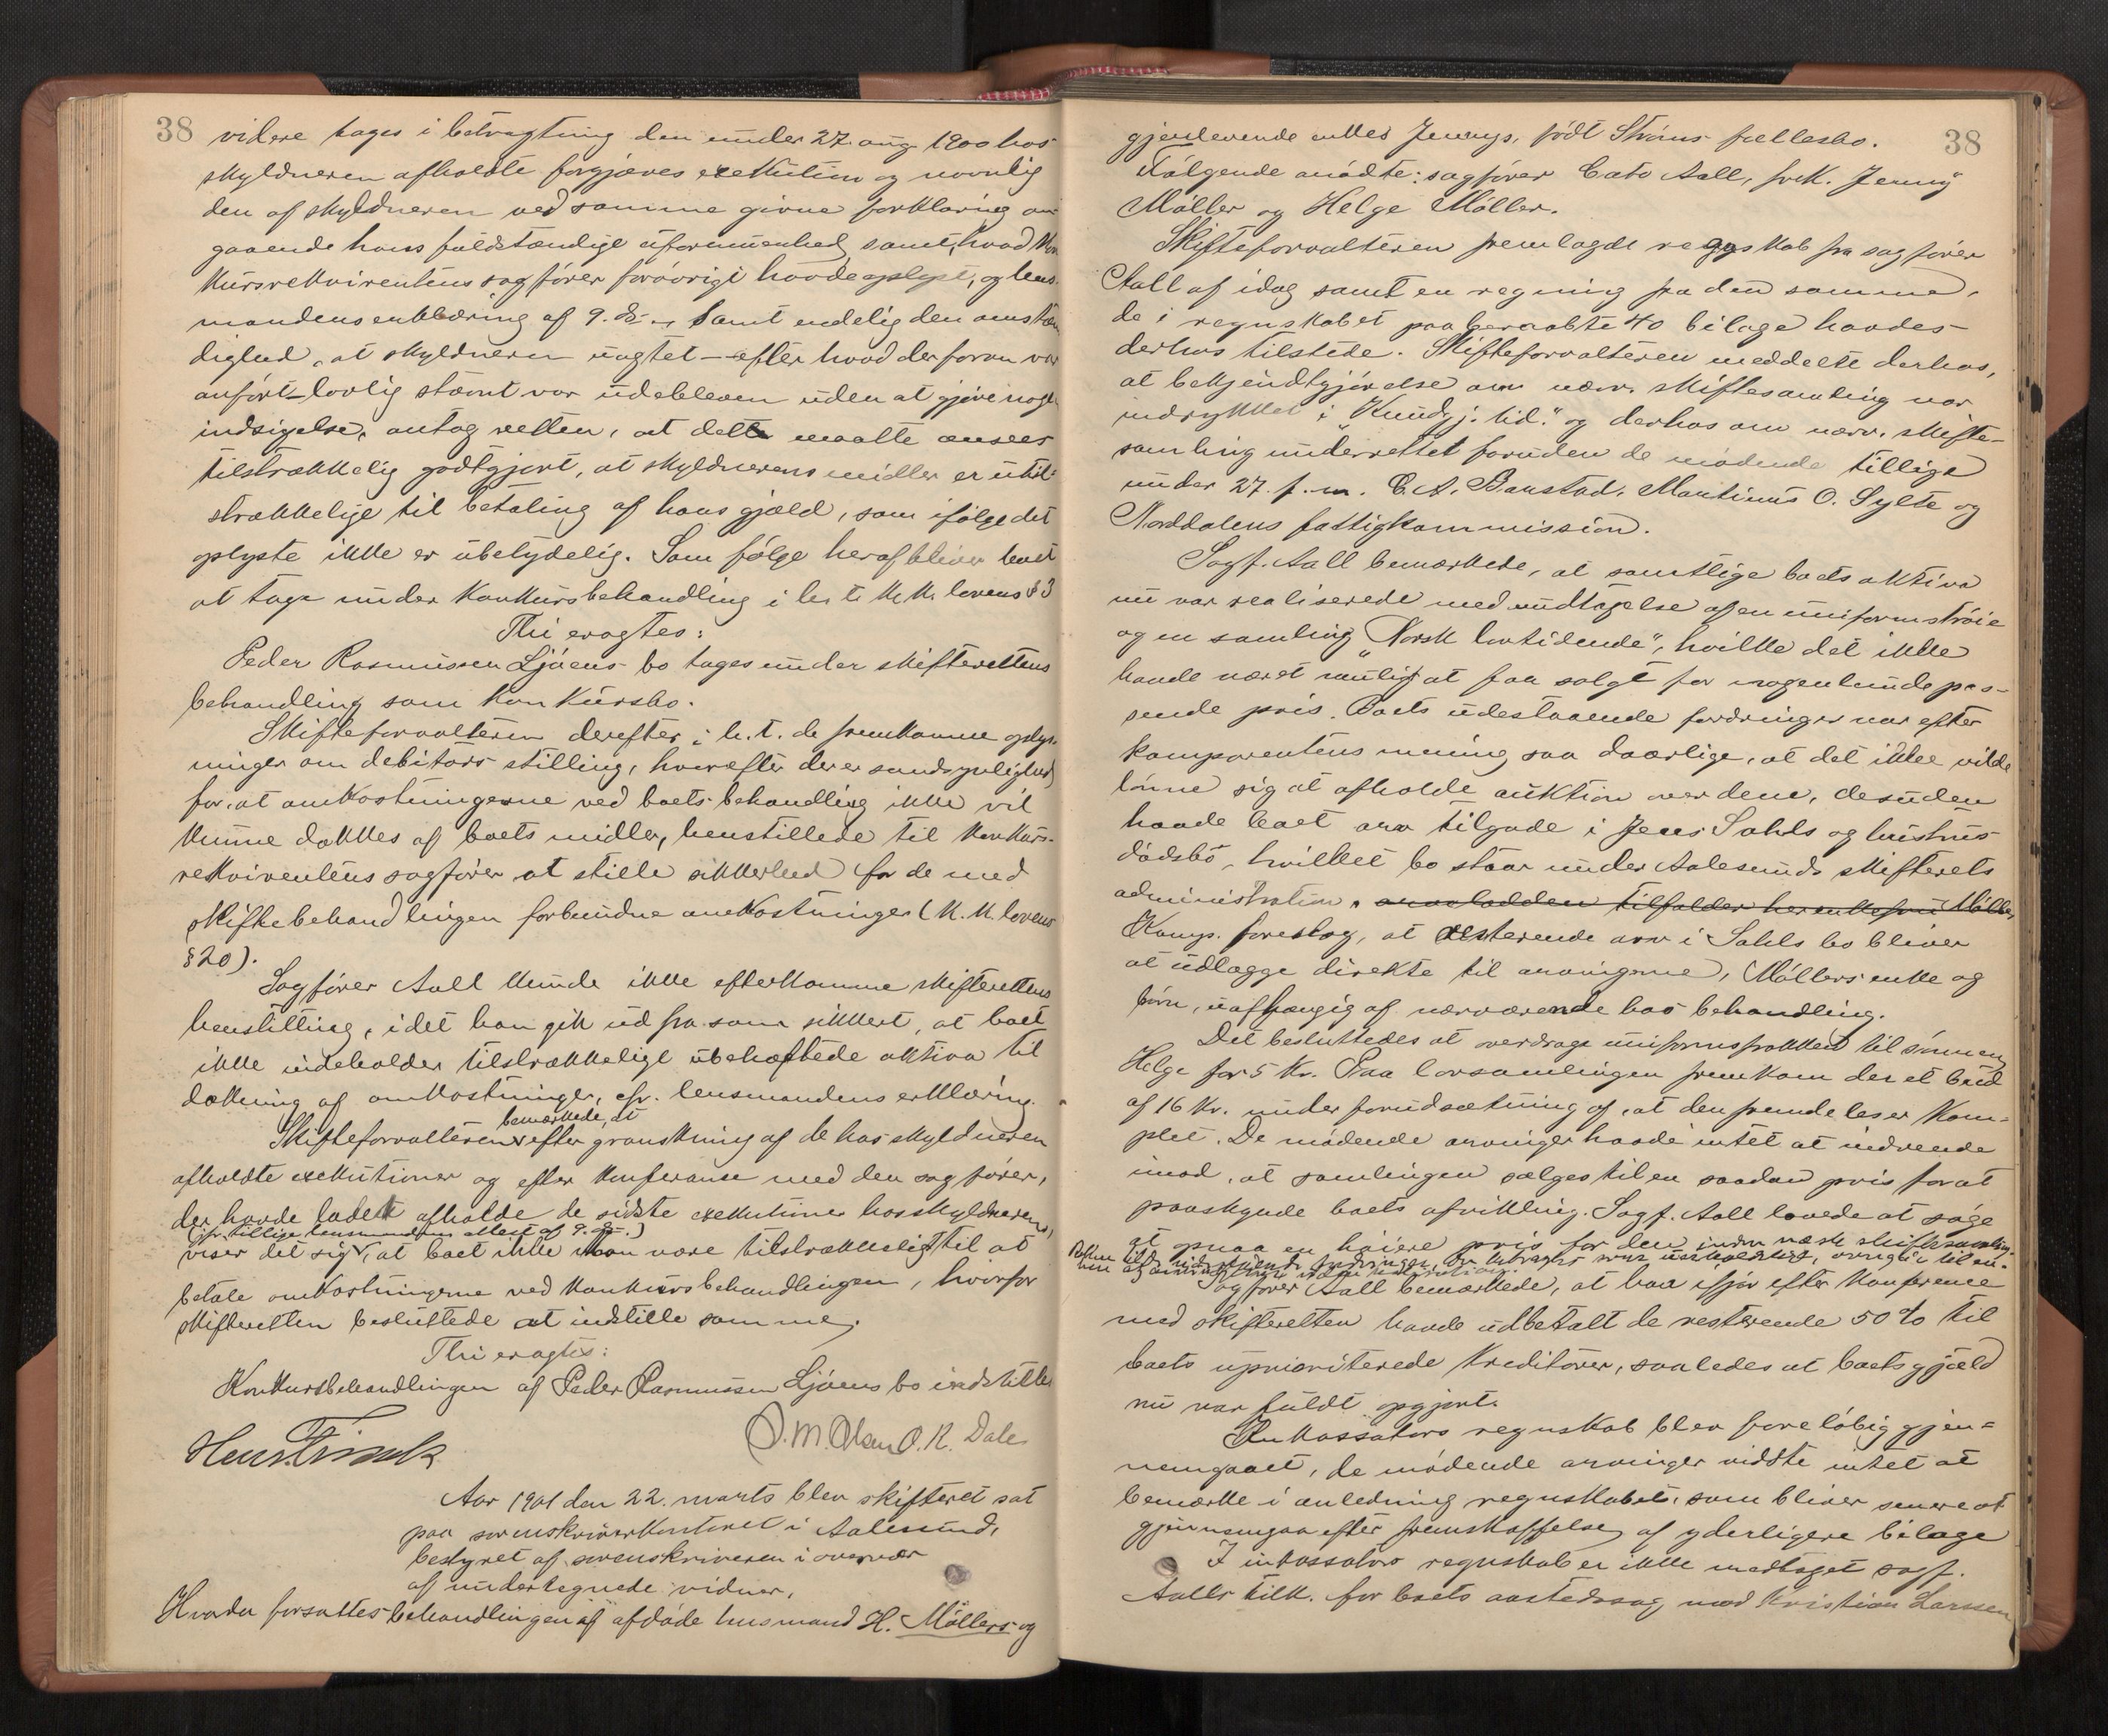 38
videre tages i betragtning den under 27. aug. 1900 hos
skyldneren afholdte forgjæves exekution og navnlig
den af skyldneren ved samme givne forklaring an-
gaaende hans fuldstændige uformuenhed, samt, hvad kon
kursrekvirentens sagfører forøvrigt havde oplyst, og lens-
mandens erklæring af 9. ds. samt endelig den omstæn
dighed, at skyldneren uagtet – efter hvad der foran var
anført – lovlig stævnt var udebleven uden at gjøre nogen
indsigelse, antog retten, at dette maatte ansees
tilstrækkelig godtgjort, at skyldnerens midler er util-
strækkelige til betaling af hans gjæld, som ifølge det
oplyste ikke er ubetydelig. Som følge heraf bliver boet
at tage under konkursbehandling i h. t. k. k. lovens § 3
Thi eragtes:
Peder Rasmussen Ljøens bo tages under skifterettens
behandling som konkursbo.
Skifteforvalteren derefter i h. t. de fremkomne oplys-
ninger om debitors stilling, hvorefter der er sandsynlighed
for, at omkostningerne ved boets behandling ikke vil
kunne dækkes af boets midler, henstillede til konkurs-
rekvirentens sagfører at stille sikkerhed for de med
skiftebehandlingen forbundne omkostninger (k. k. lovens
§ 20).
Sagfører Aall kunde ikke efterkomme skifterettens
henstilling, idet han gik ud fra som sikkert, at boet
ikke indeholder tilstrækkelige ubehæftede aktiva til
dækning af omkostninger, cfr. lensmandens erklæring.
bemærkede, at
Skifteforvalteren efter granskning af de hos skyldneren
afholdte exekutioner og efter konferanse med den sagfører,
der havde ladet afholde de sidste exekutioner hos skyldneren,
(jfr. tillige lensmandens attest af 9. ds.)
viser det sig, at boet ikke kan være tilstrækkeligt til at
betale omkostningerne ved konkursbehandlingen, hvorfor
skifteretten besluttede at indstille samme.
Thi eragtes:
Konkursbehandlingen af Peder Rasmussen Ljøens bo indstilles
O. R. Dale
Aar 1901 den 22. marts blev skifteret sat
paa sorenskriverkontoret i Aalesund,
bestyret af sorenskriveren i overvær
af undertegnede vidner.
Hvorda forsattes behandlingen af afdøde husmand H. Møllers og
38
gjenlevende enkes Jennys, født Strøms fællesbo.
Følgende mødte: sagfører Cato Aall, frk. Jenny
Møller og Helge Møller.
Skifteforvalteren fremlagde regnskab fra sagfører
Aall af idag samt en regning fra den samme,
de i regnskabet paaberaabte 40 bilage havdes
derhos tilstede. Skifteforvalteren meddelte derhos,
at bekjendtgjørelse om nærv. skiftesamling var
indrykket i "Kundgj. tid." og derhos om nærv. skifte-
samling underrettet foruden de mødende tillige
under 27. f. m. C. A. Banstad, Martinus O. Sylte og
Norddalens fattigkommission.
Sagf. Aall bemærkede, at samtlige boets aktiva
nu var realiserede med undtagelse af en uniformstrøie
og en samling "Norsk lovtidende", hvilke det ikke
havde været muligt at faa solgt for nogenlunde pas-
sende pris. Boets udestaaende fordringer var efter
komparentens mening saa daarlige, at det ikke vilde
lønne sig at afholde auktion over dem, desuden
havde boet arv tilgode i Jens Sahls og hustrus
dødsbo, hvilket bo staar under Aalesunds skifterets
administration. arvelodden tilfalder her enkefru Møller,
Komp. foreslog, at resterende arv i Sahls bo bliver
at udlægge direkte til arvingerne, Møllers enke og
børn, uafhængig af nærværende bos behandling.
Det besluttedes at overdrage uniformsfrakken til sønnen
Helge for 5 kr. Paa lovsamlingen fremkom der et bud
af 16 kr. under forudsætning af, at den fremdeles er kom-
plet. De mødende arvinger havde intet at indvende
imod, at samlingen sælges til en saadan pris for at
paaskynde boets afvikling. Sagf. Aall lovede at søge
at opnaa en høiere pris for den inden næste skiftesamling.
Sagfører Aall bemærkede, at han ifjor efter konference
med skifteretten havde udbetalt de resterende 50 % til
boets uprioriterede kreditorer, saaledes at boets gjæld
nu var fuldt opgjort.
Inkassators regnskab blev foreløbig gjen-
nemgaaet, de mødende arvinger vidste intet at
bemærke i anledning regnskabet, som bliver senere at
gjennemgaa efter fremskaffelse af yderligere bilage
I inkassators regnskab er ikke medtaget sagf.
Aalls tilk. for boets aastedssag mod Kristian Larssen